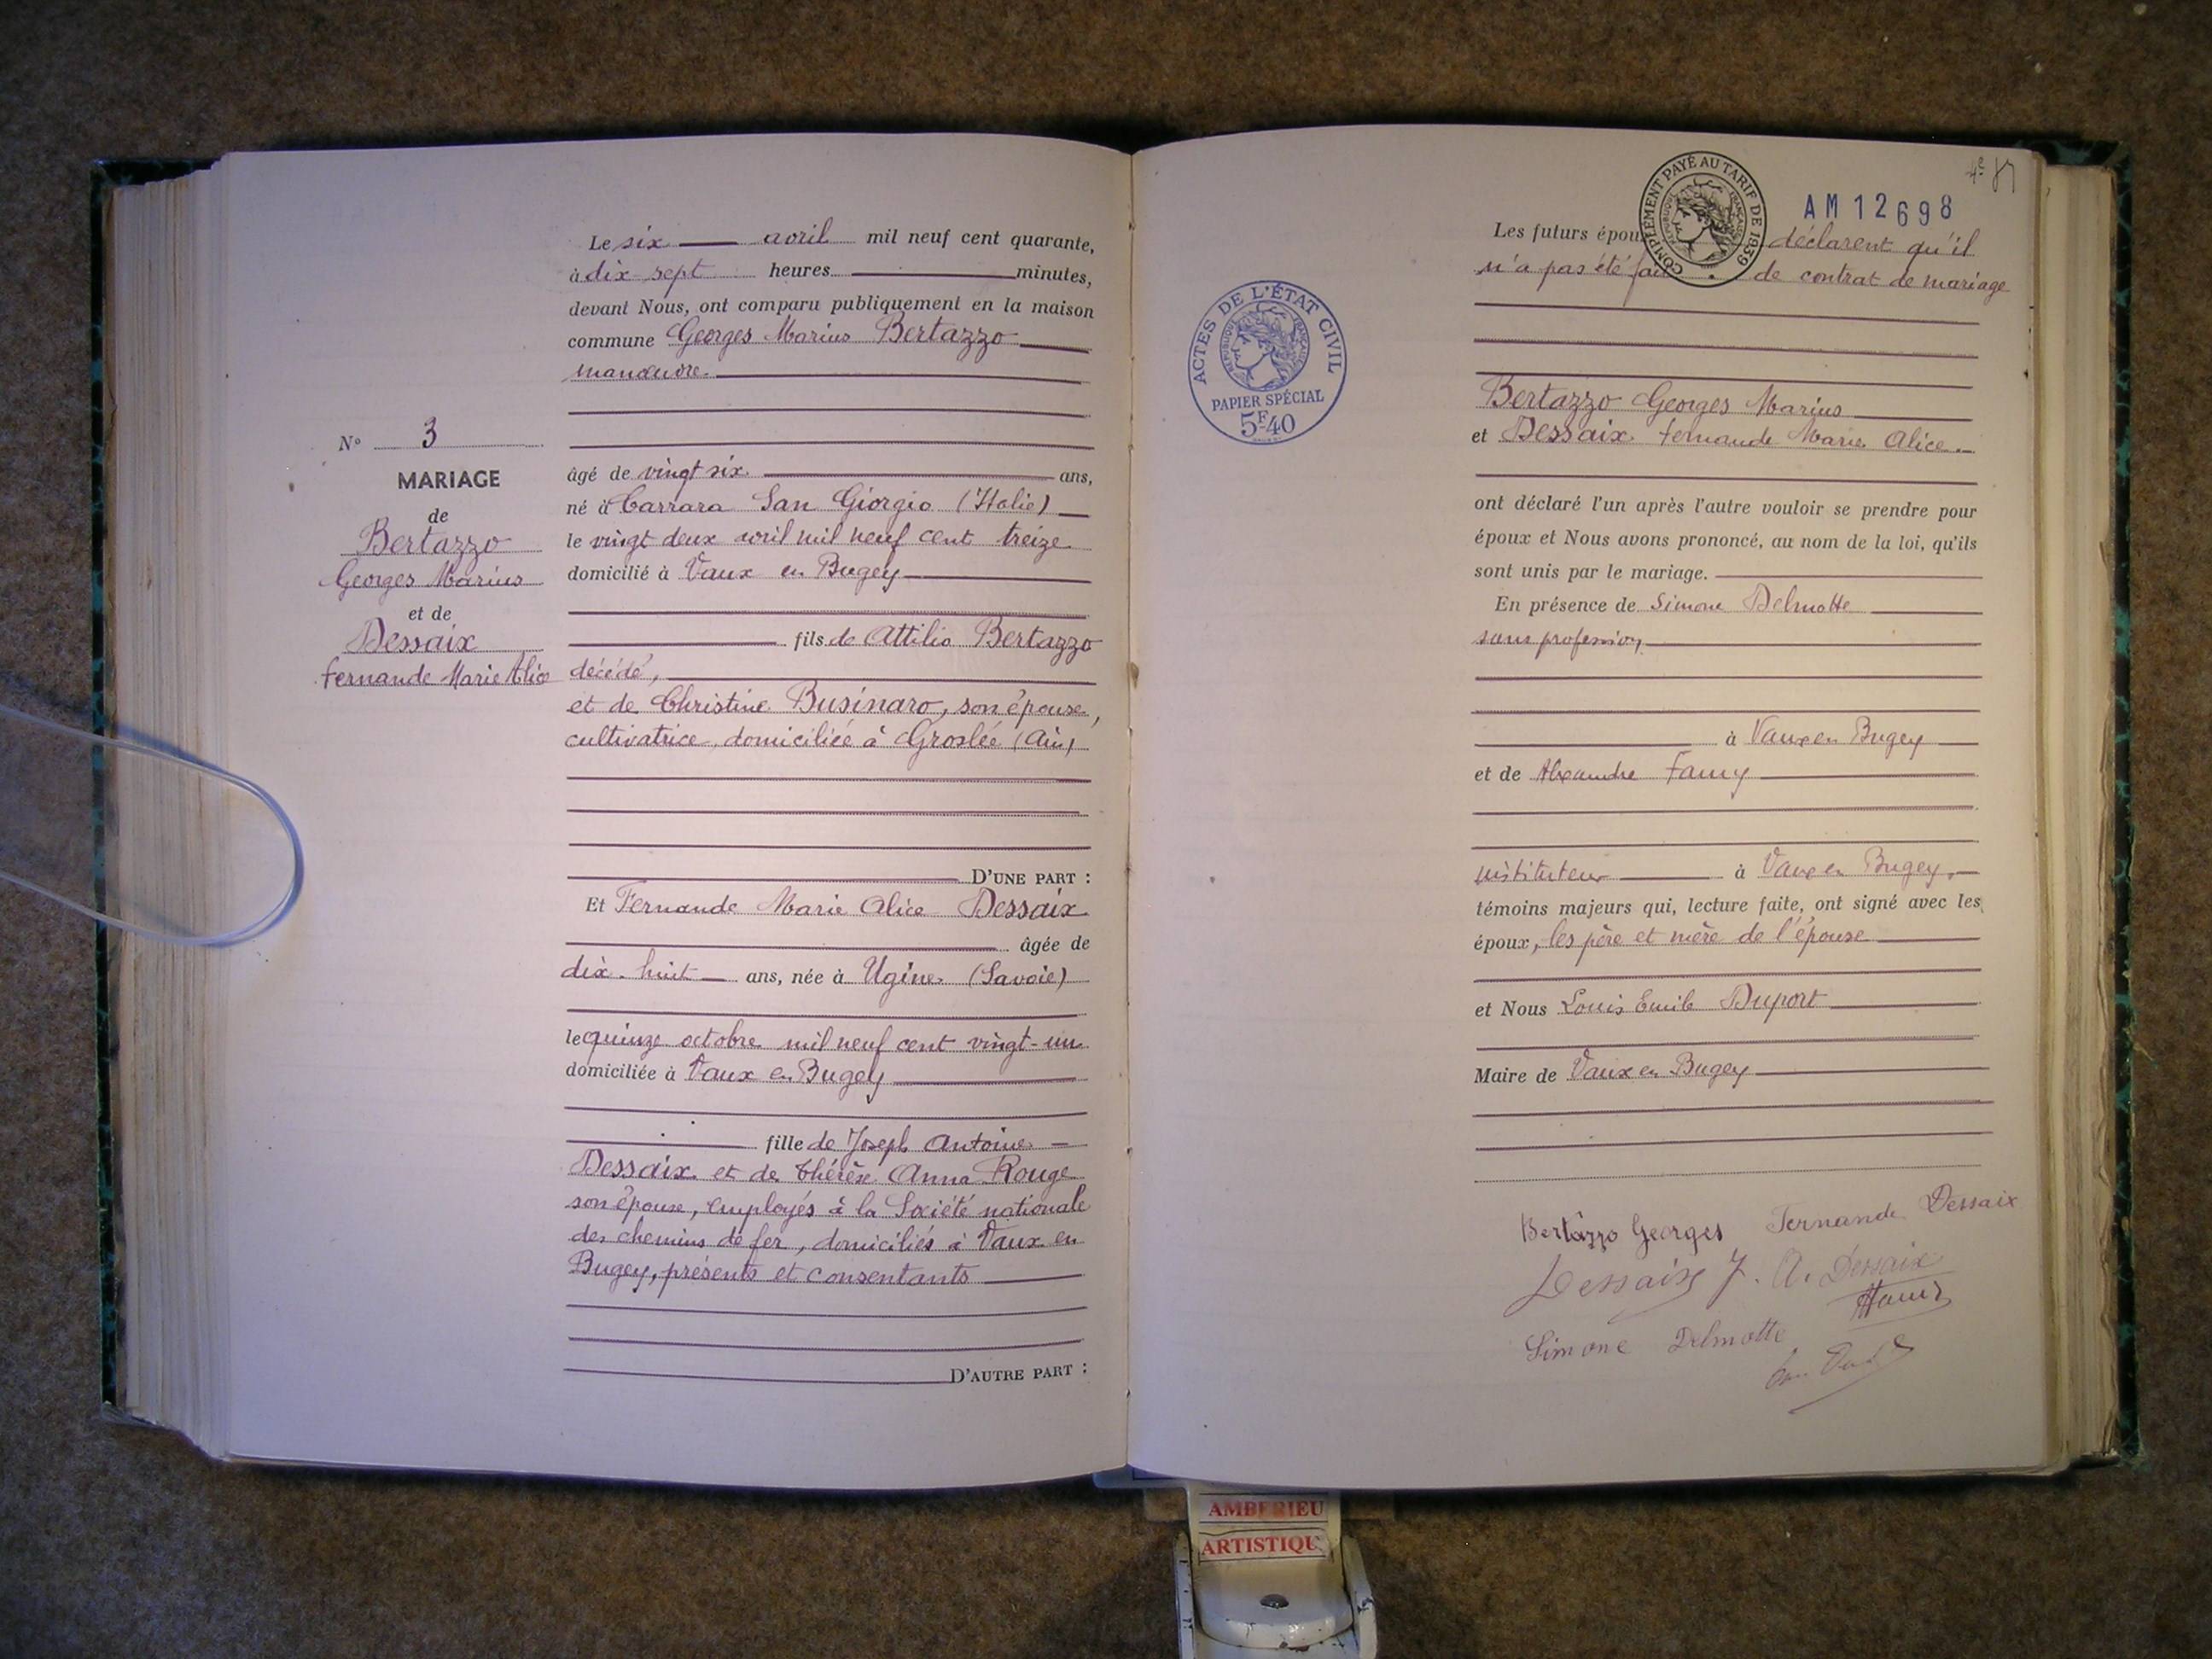 N° 3
MARIAGE
de
Bertazzo
Georges Marius
et de
Dessaix
Fernande Marie Alice
Le six avril mil neuf cent quarante,
à dix-sept heures minutes,
devant Nous, ont comparu publiquement en la maison
commune Georges Marius Bertazzo
manœuvre.
âgé de vingt six ans,
né à Carrara San Giorgio (Italie)
le vingt deux avril mil neuf cent treize
domicilié à Vaux en Bugey
fils de Attilio Bertazzo
décédé,
et de Christine Businaro, son épouse,
cultivatrice, domiciliée à Groslée (Ain)
D'UNE PART :
Et Fernande Marie Alice Dessaix
âgée de
dix-huit ans, née à Ugines (Savoie)
le quinze octobre mil neuf cent vingt-un
domiciliée à Vaux en Bugey
fille de Joseph Antoine
Dessaix et de Thérèse Anna Rouge
son épouse, employés à la Société nationale
des chemins de fer, domiciliés à Vaux en
Bugey, présents et consentants
D'AUTRE PART :
ACTES DE L'ÉTAT CIVIL
RÉPUBLIQUE FRANÇAISE
PAPIER SPÉCIAL
5F40
COMPLÉMENT PAYÉ AU TARIF DE 1939
RÉPUBLIQUE FRANÇAISE
AM 12698
Les futurs épou déclarent qu'il
n'a pas été fait de contrat de mariage
Bertazzo Georges Marius
et Dessaix Fernande Marie Alice
ont déclaré l'un après l'autre vouloir se prendre pour
époux et Nous avons prononcé, au nom de la loi, qu'ils
sont unis par le mariage.
En présence de Simone Delmotte
sans profession
à Vaux en Bugey
et de Alexandre Famy
instituteur à Vaux en Bugey,
témoins majeurs qui, lecture faite, ont signé avec les
époux, les père et mère de l'épouse
et Nous Louis Emile Duport
Maire de Vaux en Bugey
Bertazzo Georges Fernande Dessaix
Dessaix J. A. Dessaix
Simone Delmotte
AMBERIEU
ARTISTIQU